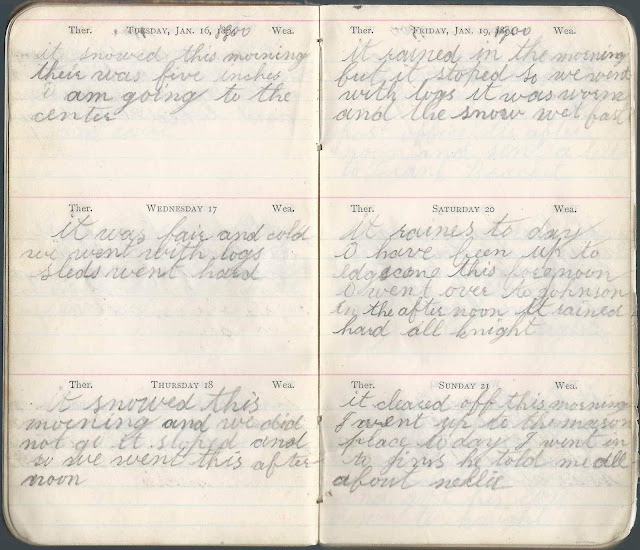 Ther. TUESDAY, JAN. 16, 1900 Wea.
it snowed this morning
their was five inches
i am going to the
center
Ther. WEDNESDAY 17 Wea.
it was fair and cold
we went with logs
sleds went hard
Ther. THURSDAY 18 Wea.
it snowed this
morning and we did
not go it stoped and
so we went this after
noon
Ther. FRIDAY, JAN. 19, 1900 Wea.
it rained in the morning
but it stoped so we went
with logs it was worm
and the snow wet fast
Ther. SATURDAY 20 Wea.
it raines to day
I have been up to
this forenoon
I went over to Johnson
in the after noon it rained
hard all knight
Ther. SUNDAY 21 Wea.
it cleared off this morning
I went up to the mason
place today I went in
to Jims he told me all
about